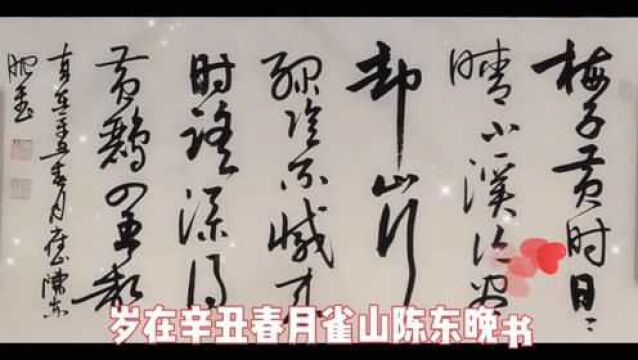 梅子黄时日〻
晴小溪泛尽
却山行
绿阴不减来
时路添得
黄鹂四五声
岁在辛丑春月雀山陈东
晚书
岁在辛丑春月雀山陈东晚书